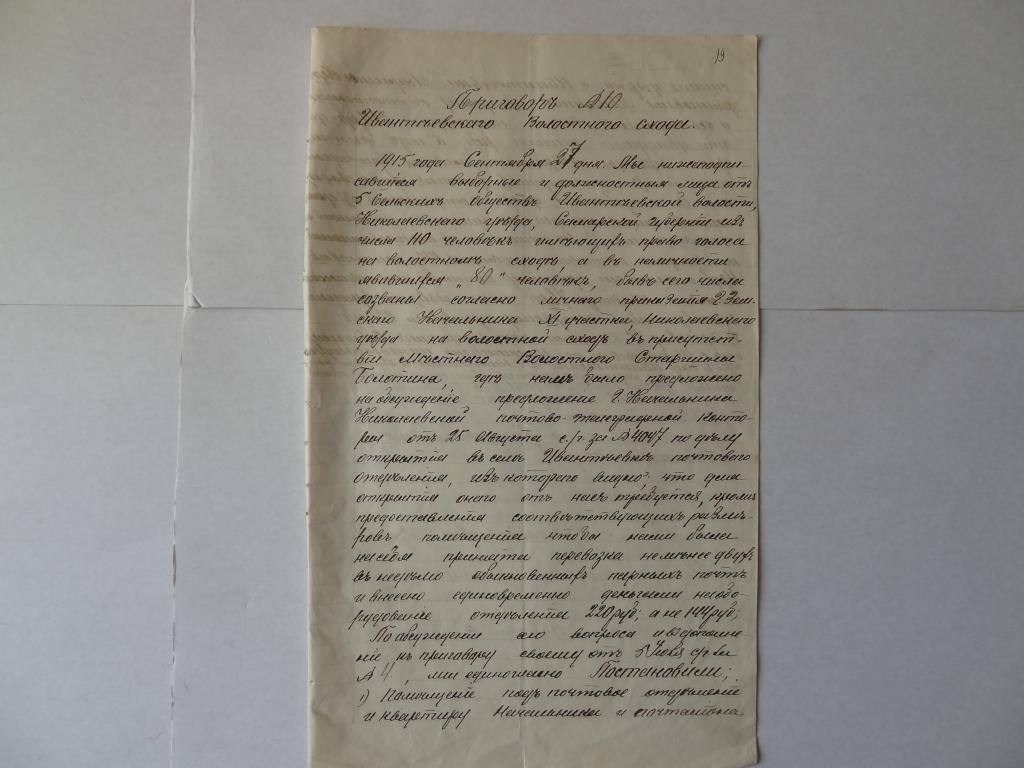 19
Приговоръ № 10
Ивантѣевскаго Волостного схода.
1915 года Сентября 27 дня. Мы нижеподпи-
савшіеся выборные и должностныя лица отъ
5 Сельскихъ обществъ Ивантѣевской волости,
Николаевскаго уѣзда, Самарской губерніи изъ
числа 110 человѣкъ имѣющихъ право голоса
на волостномъ сходѣ, а въ наличности
явившихся „80" человѣкъ, бывъ сего числа
созваны согласно личнаго Г. Зем-
скаго Начальника XI участка, Николаевскаго
уѣзда на волостной сходъ въ присутст-
віи Мѣстнаго Волостного Старшины
Болотина, гдѣ намъ было предложено
на обсужденіе предложеніе Г. Начальника
Николаевской почтово-телеграфной Конто-
ры отъ 25 Августа с./г. за № 4047 по дѣлу
открытія въ селѣ Ивантѣевкѣ почтового
отдѣленія, изъ котораго видно, что для
открытія онаго отъ насъ требуется, кромѣ
предоставленія соотвѣтствующихъ размѣ-
ровъ помѣщенія чтобы нами была
на себя принята перевозка не менѣе двухъ
въ недѣлю обыкновенныхъ парныхъ почтъ
и внесено единовременно деньгами на обо-
рудованіе отдѣленія 220 руб; а не 144 руб;
По обсужденіи сего вопроса и въ дополне-
ніе къ приговору своему отъ 5 с/г за
№ 4, мы единогласно Постановили;
1) Помѣщеніе подъ почтовое отдѣленіе
и квартиру Начальника и почталіона